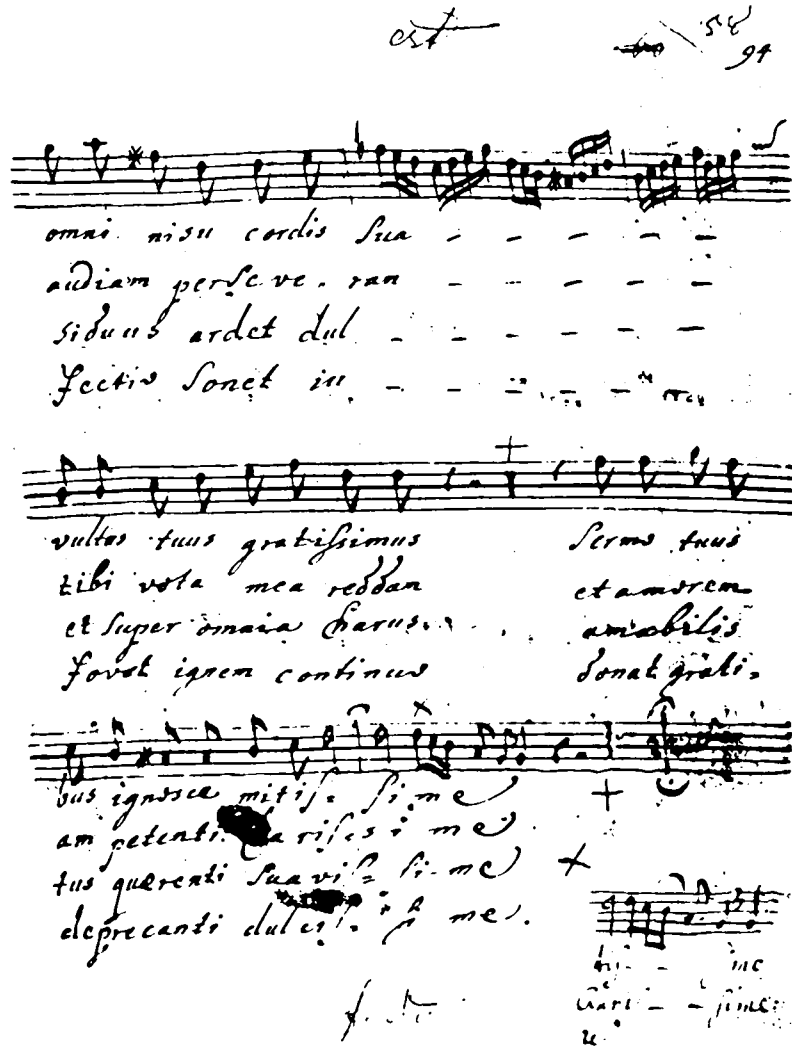 est
58
94
omni nisu cordis sua - - - - - -
audiam perseve. ran - - - - -
siduus ardet dul - - - - - -
fectio sonet in - - - - -
vultus tuus gratissimus sermo tuus
tibi vota mea reddam et amorem
et super omnia charus amabilis
fovet ignem continuo donat grati=
bus ignosce mitis= sime
am petenti charissime
tus quærenti suavis= sime
deprecanti dulcis= sime.
sime
Chari - - sime: